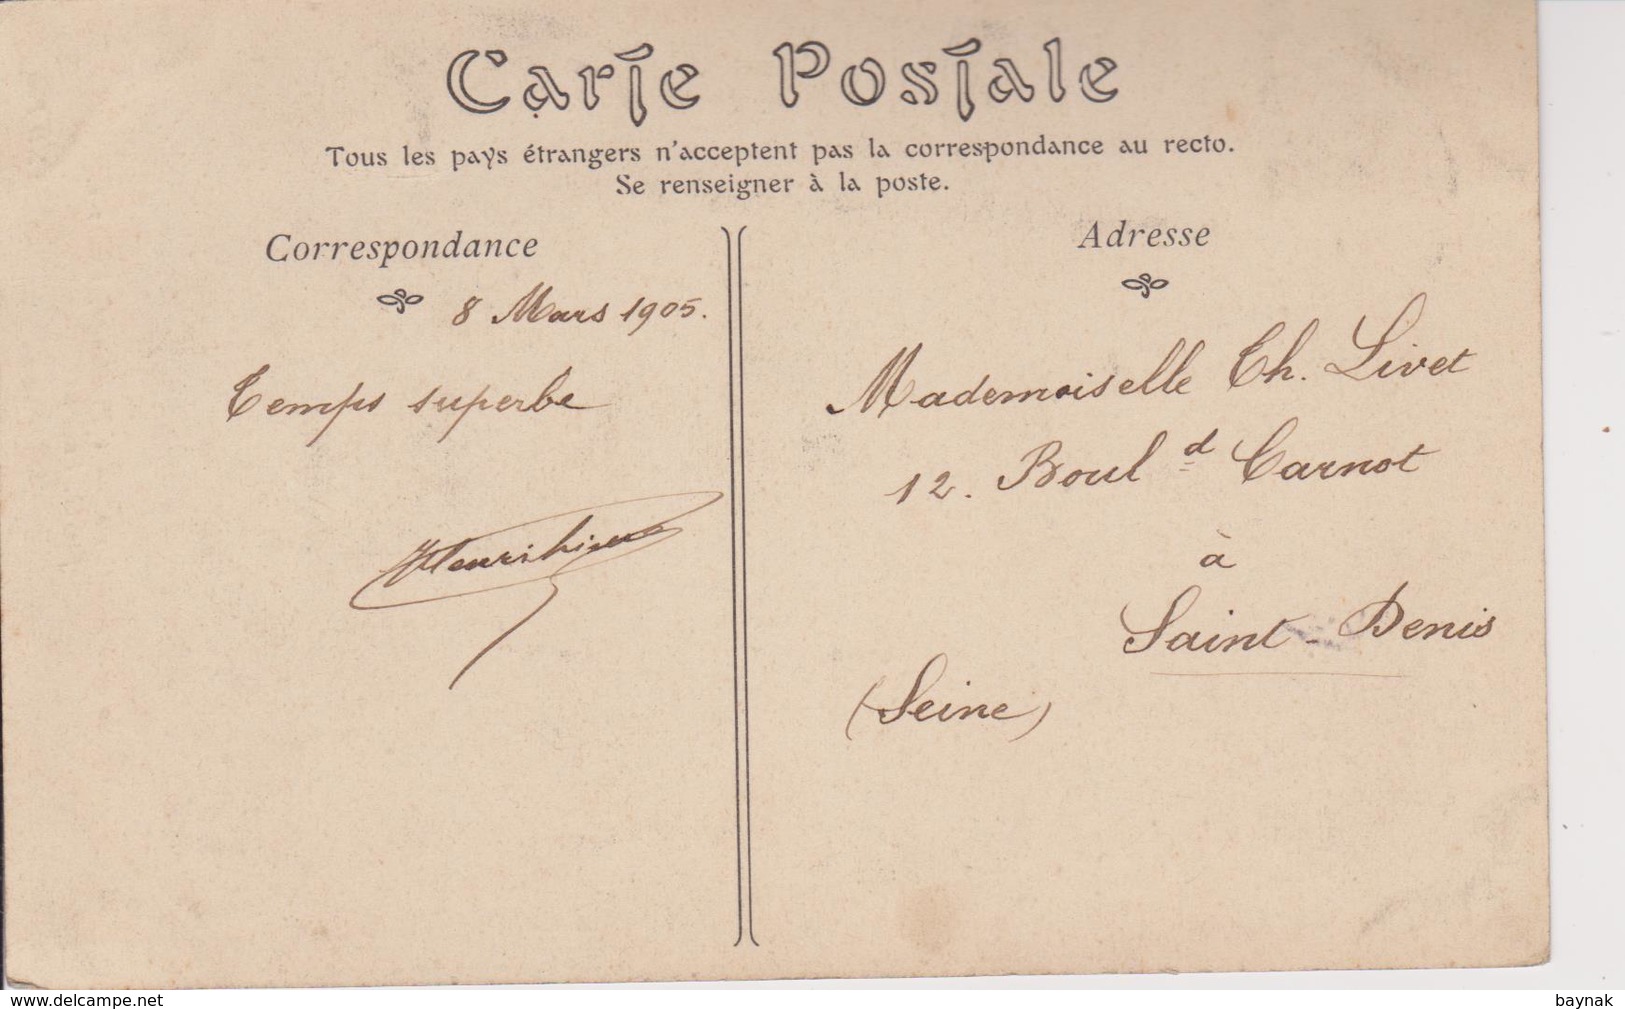 Carte Postale
Tous les pays étrangers n'acceptent pas la correspondance au recto.
Se renseigner à la poste.
Correspondance
8 Mars 1905.
Temps superbe
Adresse
Mademoiselle Ch. Livet
12. Boul d Carnot
à
Saint-Denis
(Seine)
www.delcampe.net
baynak